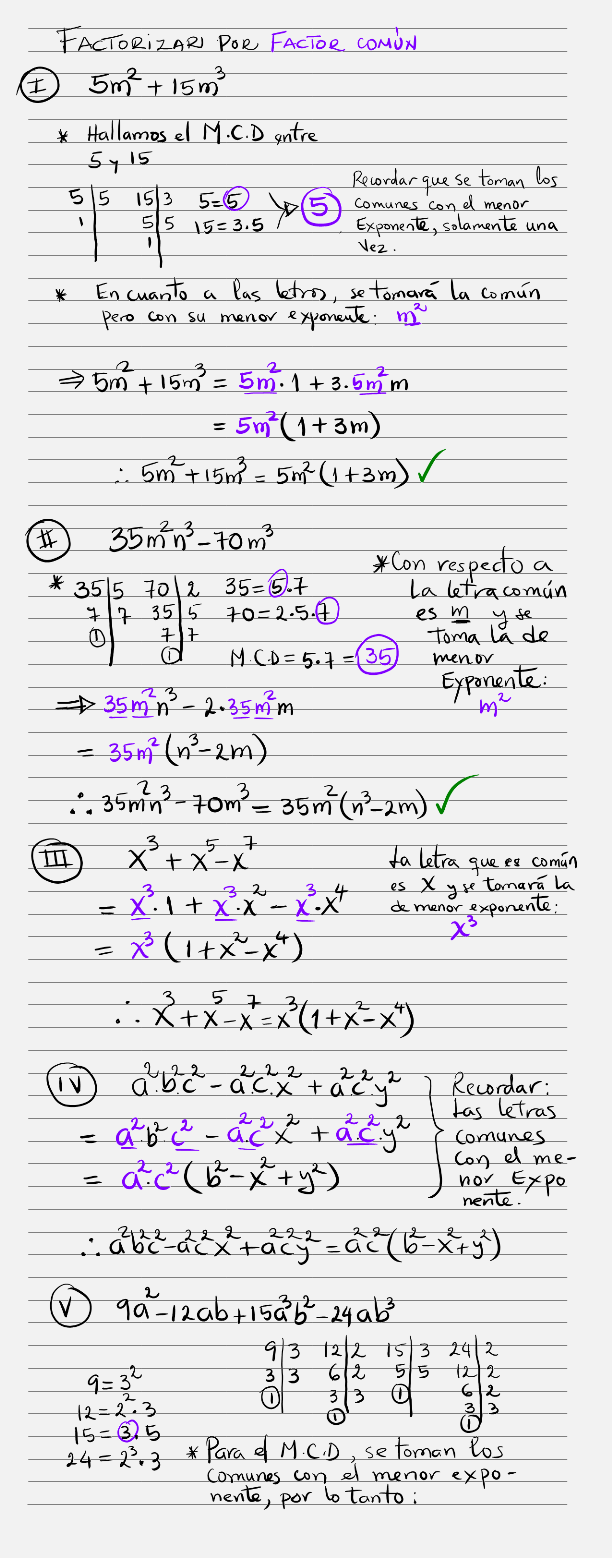 FACTORIZAR POR FACTOR COMÚN
I 5m² + 15m³
* Hallamos el M.C.D entre
5 y 15
5 | 5 15 | 3 5 = 5 5
1 | 5 | 5 15 = 3.5
1 |
Recordar que se toman los
comunes con el menor
Exponente, solamente una
vez.
* En cuanto a las letras, se tomará la común
pero con su menor exponente: m²
⇒ 5m² + 15m³ = 5m²·1 + 3·5m²m
= 5m²(1 + 3m)
∴ 5m² + 15m³ = 5m²(1 + 3m) ✓
II 35m²n³ - 70m³
* 35 | 5 70 | 2 35 = 5.7
7 | 7 35 | 5 70 = 2.5.7
1 | 7 | 7
1 | M.C.D = 5.7 = 35
*Con respecto a
la letra común
es m y se
toma la de
menor
Exponente:
m²
⇒ 35m²n³ - 2·35m²m
= 35m²(n³ - 2m)
∴ 35m²n³ - 70m³ = 35m²(n³ - 2m) ✓
III x³ + x⁵ - x⁷
= x³·1 + x³·x² - x³·x⁴
= x³(1 + x² - x⁴)
La letra que es común
es X y se tomará la
de menor exponente:
x³
∴ x³ + x⁵ - x⁷ = x³(1 + x² - x⁴)
IV a²·b²·c² - a²·c²·x² + a²·c²·y²
= a²·b²·c² - a²·c²·x² + a²·c²·y²
= a²·c²(b² - x² + y²)
Recordar:
Las letras
comunes
con el me-
nor Expo
nente.
∴ a²b²c² - a²c²x² + a²c²y² = a²c²(b² - x² + y²)
V 9a² - 12ab + 15a³b² - 24ab³
9 | 3 12 | 2 15 | 3 24 | 2
3 | 3 6 | 2 5 | 5 12 | 2
1 | 3 | 3 1 | 6 | 2
1 | 3 | 3
1 |
9 = 3²
12 = 2²·3
15 = 3·5
24 = 2³·3
* Para el M.C.D, se toman los
comunes con el menor expo-
nente, por lo tanto: